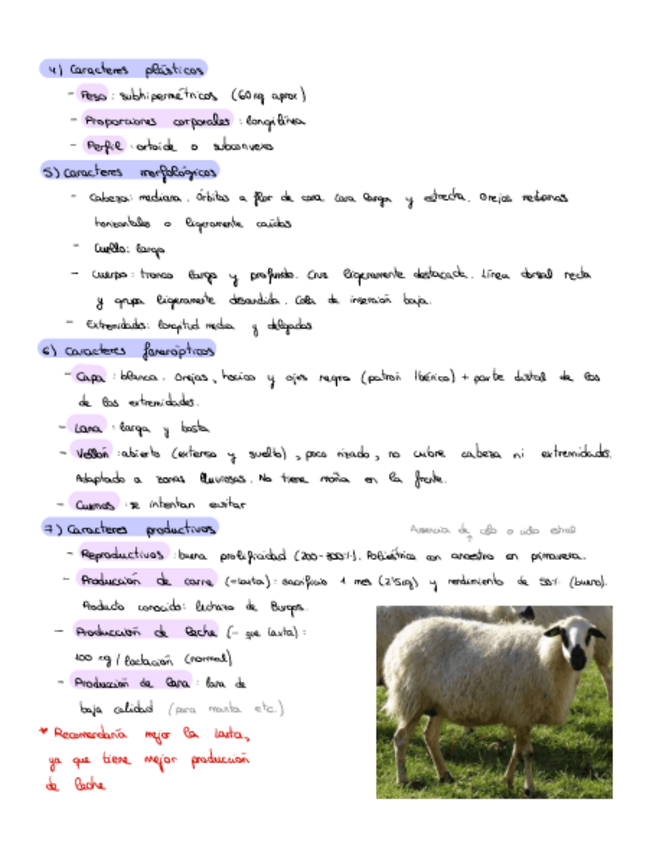 4) Caracteres plásticos
- Peso: subhipermétricos (60kg aprox)
- Proporciones corporales: longilínea
- Perfil: ortoide o subconvexo
5) Caracteres morfológicos
- Cabeza: mediana. Órbitas a flor de cara. Cara larga y estrecha. Orejas medianas
horizontales o ligeramente caídas
- Cuello: largo
- Cuerpo: tronco largo y profundo. Cruz ligeramente destacada. Línea dorsal recta
y grupa ligeramente descendida. Cola de inserción baja.
- Extremidades: longitud media y delgadas
6) Caracteres fanerópticos
- Capa: blanca. Orejas, hocico y ojos negro (patrón Ibérico) + parte distal de las
de las extremidades.
- Lana: larga y basta
- Vellón: abierto (extenso y suelto), poco rizado, no cubre cabeza ni extremidades.
Adaptado a zonas lluviosas. No tiene moña en la frente.
- Cuernos: se intentan evitar
7) Caracteres productivos
Ausencia de celo o ciclo estral
- Reproductivos: buena prolificidad (200-300%). Poliéstrica con anestro en primavera.
- Producción de carne (=laxta): sacrificio 1 mes (25kg) y rendimiento de 50% (bueno).
Producto conocido: lechazo de Burgos.
- Producción de leche (- que laxta):
100 kg/lactación (normal)
- Producción de lana: lana de
baja calidad (para manta etc.)
* Recomendaría mejor la laxta,
ya que tiene mejor producción
de leche